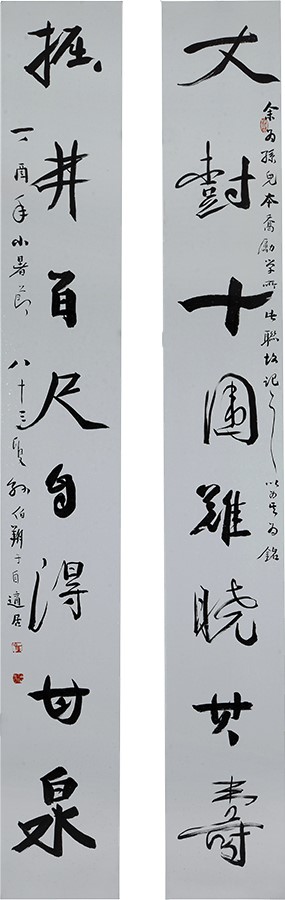 丈樹十圍難曉其壽
余为孫兒本喬勵学此聯故記之以为銘
掘井百尺自得甘泉
丁酉年小暑節八十三叟孙伯翔于自適居